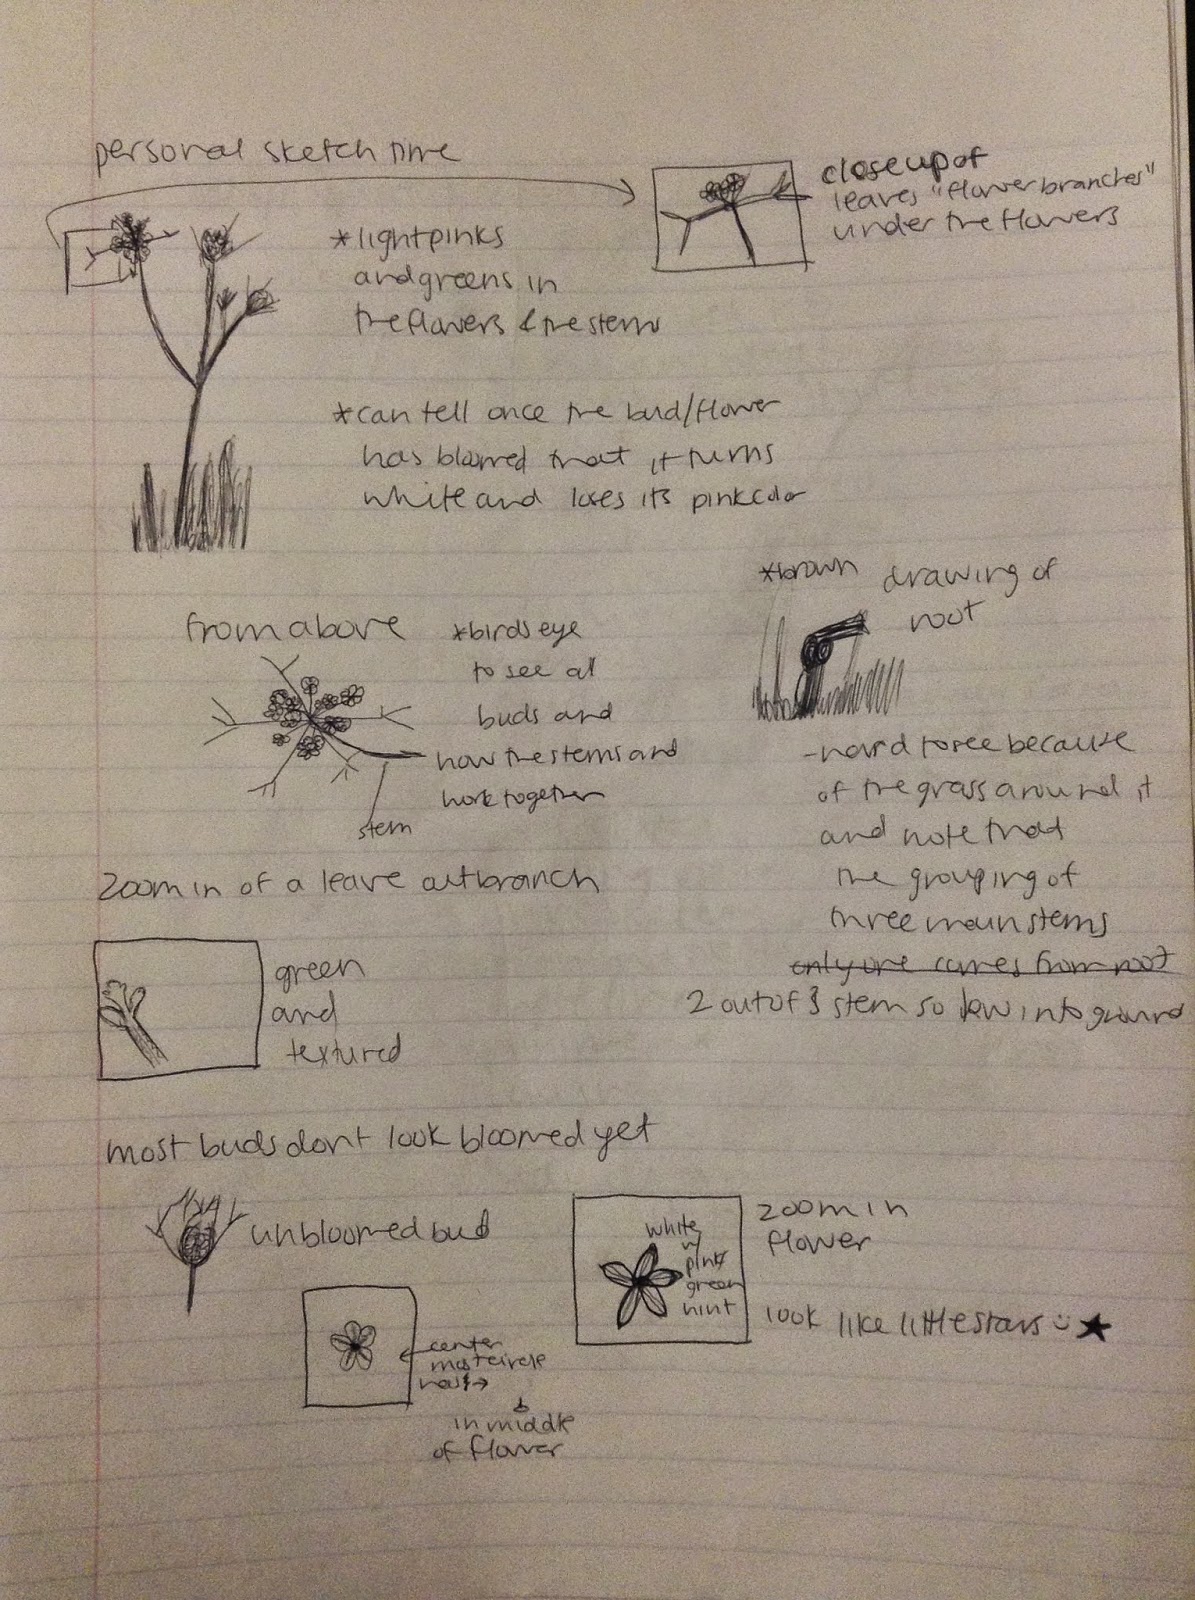 personal sketch time
close up of
leaves "flower branches"
under the flowers
*light pinks
and greens in
the flowers & the stems
*can tell once the bud/flower
has bloomed that it turns
white and loses its pink color
*brown drawing of
root
from above
*birds eye
to see all
buds and
how the stems and
work together
stem
-hard to see because
of the grass around it
and note that
the grouping of
three main stems
only one comes from root
2 out of 3 stem so low into ground
zoom in of a leave outbranch
green
and
textured
most buds dont look bloomed yet
unbloomed bud
white
w/
pink/
green
hint
zoom in
flower
look like little stars
center
most circle
in middle
of flower